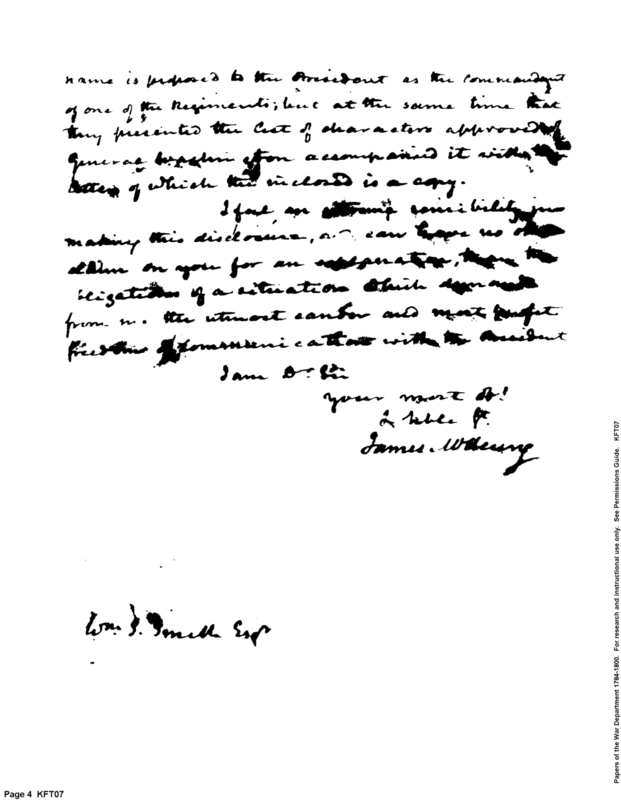 name is proposed to the President as the Commandant
of one of the Regiments; but at the same time that
they presented the List of characters approved of
General accompanied it with the
letter of which the inclosed is a copy.
I feel an sensibility in
making this disclosure, can have no
claim on you for an the
obligations of a situation which demands
from me the utmost candor and most perfect
freedom of communication with the President
I am Dr Sir
your most obt
& hble St
James McHenry
Wm S. Smith Esqr
Page 4 KFT07
Papers of the War Department 1784-1800. For research and instructional use only. See Permissions Guide. KFT07